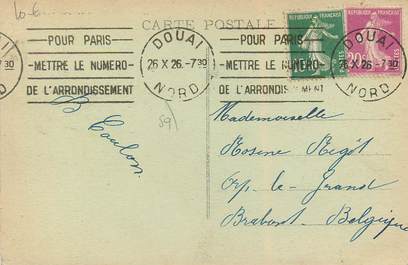 10-6
CARTE POSTALE
POUR PARIS
METTRE LE NUMERO
DE L'ARRONDISSEMENT
DOUAI
26 X 26 - 7 30
NORD
POUR PARIS
METTRE LE NUMERO
DE L'ARRONDISSEMENT
DOUAI
26 X 26 - 7 30
NORD
REPUBLIQUE FRANÇAISE
10
REPUBLIQUE FRANÇAISE
20
B Coulon
59
Mademoiselle
Rosine Rigót
Orp-le-Grand
Brabant-Belgique